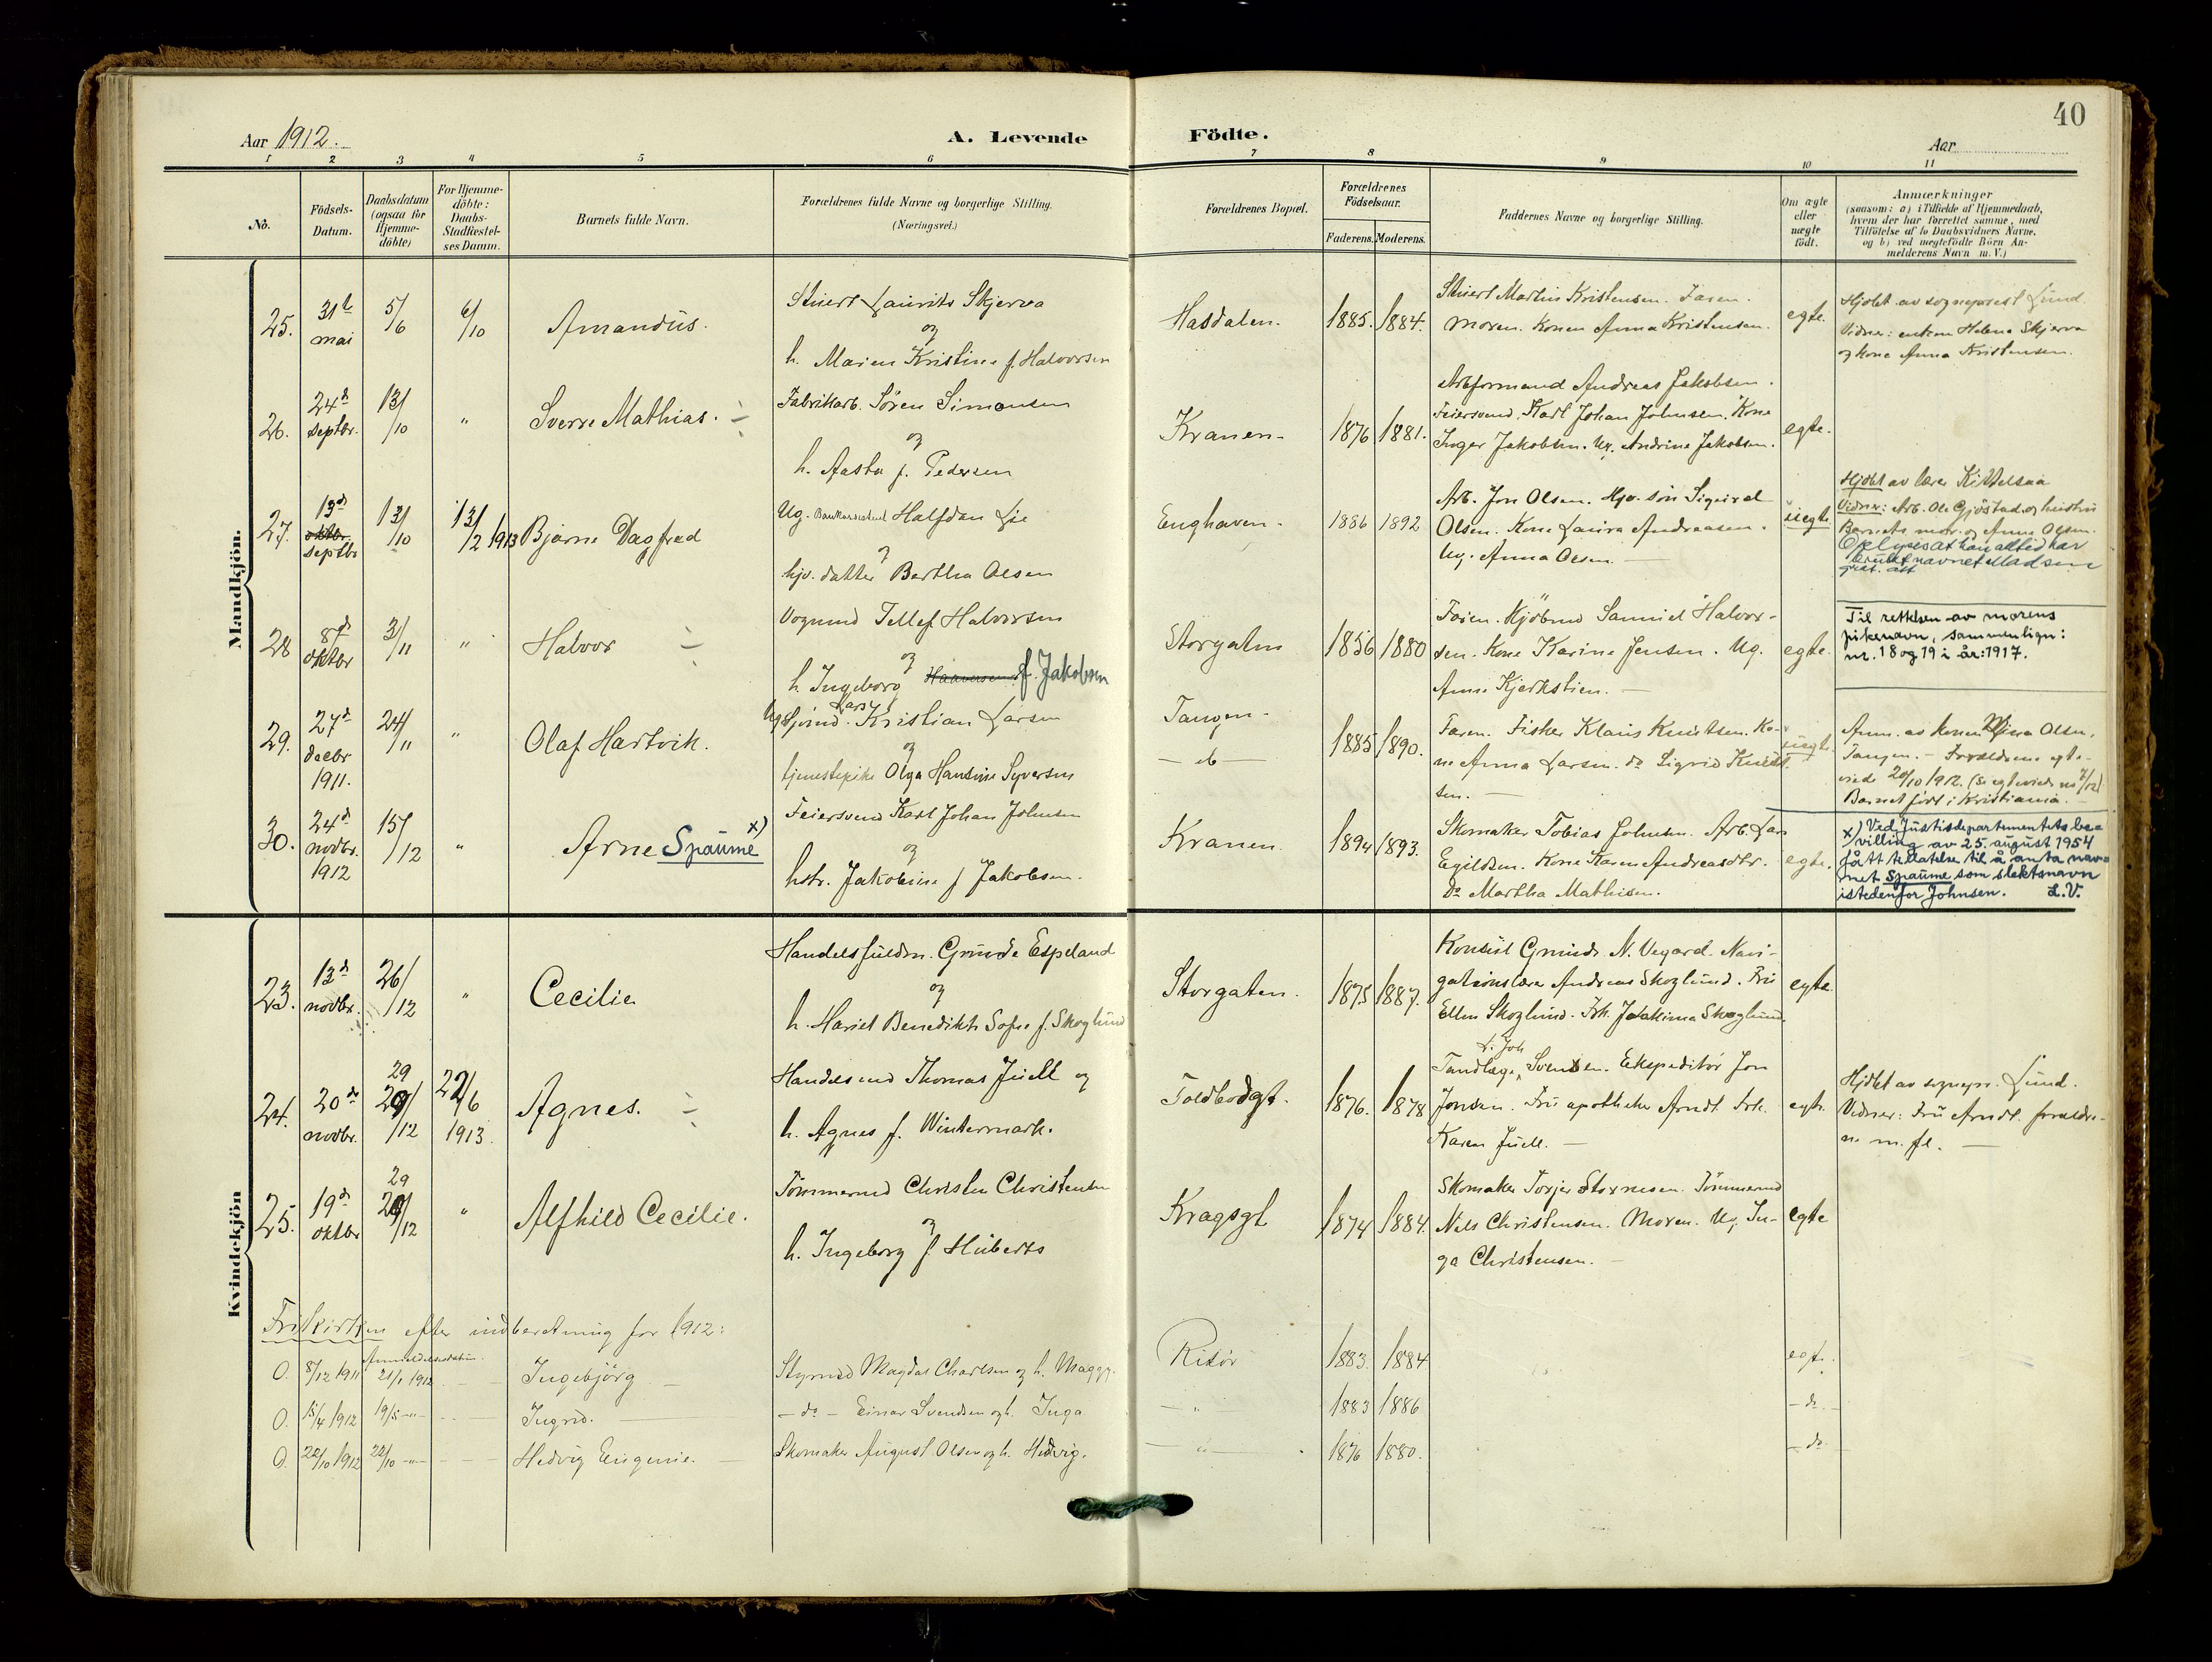 40
Aar 1912.
A. Levende Födte.
Aar
1 2 3 4 5 6 7 8 9 10 11
No.
Födsels-
Datum.
Daabsdatum
(ogsaa for
Hjemme-
döbte)
For Hjemme-
döbte:
Daabs-
Stadfæstel-
ses Datum.
Barnets fulde Navn.
Forældrenes fulde Navne og borgerlige Stilling.
(Næringsvei.)
Forældrenes Bopæl.
Forældrenes
Födselsaar.
Faderens. Moderens.
Faddernes Navne og borgerlige Stilling.
Om ægte
eller
uægte
födt.
Anmærkninger
(saasom: a) i Tilfælde af Hjemmedaab,
hvem der har forrettet samme, med
Tilföielse af to Daabsvidners Navne.
og b) ved uægtefödte Börn An-
melderens Navn m. V.)
Mandkjön.
25.
31te
mai
5/6
6/10
Amandus.
Stuert Laurits Skjerva
og
h. Maren Kristine f. Halvorsen
Hasdalen.
1885. 1884.
Stuert Martin Kristensen. Faren.
Moren. Konen Anna Kristensen.
egte.
Hjdbt av sogneprest Lund.
Vidner: enken Helene Skjerva
og kone Anna Kristensen.
26.
24de
septbr.
13/10
"
Sverre Mathias.
Fabrikarb. Sören Simonsen
og
h. Aasta f. Pedersen
Kranen
1876 1881.
Arbformand Andreas Jakobsen.
Feiersvend Karl Johan Johnsen. Kone
Inger Jakobsen. Ug. Andrine Jakobsen.
egte.
27.
13de
oktbr.
septbr
13/10
13/2 1913
Bjarne Dagfred
Ug. Bankassistent Halfdan Lie
og
hjv. datter Bertha Olsen
Enghaven
1886 1892
Arb. Jon Olsen. Hjv. sön Sigurd
Olsen. Kone Laura Andreasen.
Ug. Anna Olsen.
uegte
Hjdbt av lærer Kittelsaa
Vidner: Arb. Ole Gjöstad og hustru
Barnets mor og Anna Olsen.
Oplyses at han alltid har
brukt navnet Madsen
28
8de
oktbr
3/11
"
Halvor
Vognmd Tellef Halvorsen
og
h Ingeborg Haaversen f. Jakobsen
Storgaten
1856 1880
Faren. Kjöbmd Samuel Halvor-
sen. Kone Karine Jensen. Ug.
Anne Kjerkstien.
egte.
Til rettelse av morens
pikenavn, sammenlign:
nr. 18 og 19 i år: 1917.
29.
27de
decbr
1911.
24/11
"
Olaf Hartvik.
Lars
Kristian Larsen
og
tjenestepike Olga Hansine Syversen
Tangen
do
1885 1890.
Faren. Fisker Klaus Knutsen. Ko-
ne Anna Larsen. do Sigrid Knut-
sen.
uegte.
Anm. av konen Mina Olsen,
Tangen. – Forældrene egte-
viede 20/10 1912. (Se egteviede no 7/12)
Barnet födt i Kristiania.
30.
24de
novbr.
1912
15/12
"
Arne Spaume x)
Feiersvend Karl Johan Johnsen
og
hstr. Jakobine f Jakobsen.
Kranen
1894 1893.
Skomaker Tobias Johnsen. Arb. Lars
Egildsen. Kone Karen Andreasdtr.
Do Martha Mathisen.
egte.
x) Ved Justisdepartementets be-
villing av 25. august 1954
fått tillatelse til å anta nav-
net Spaume som slektsnavn
istedenfor Johnsen. L.V.
Kvindekjön
23.
13de
novbr.
26/12
"
Cecilie
Handelsfuldm. Grunde Espeland
og
h. Hariet Benedikte Sofie f. Skoglund
Storgaten.
1875 1887.
Konsul Grunde N. Vegard. Navi-
gationslærer Andreas Skoglund. Fru
Ellen Skoglund. Frk. Joakima Skoglund.
egte
24.
20de
novbr.
29
29/12
22/6
1913.
Agnes.
Handelsmd Thomas Juell og
h. Agnes f. Wintermark.
Toldbodgt.
1876. 1878
Tandlæge Svendsen. Ekspeditör Jon
Jonsen. Fru apotheker Arndt. Frk.
Karen Juell.
egte.
Hjdbt av sognepr. Lund.
Vidner: Fru Arndt. forældre-
ne m. fl.
25.
19de
oktbr
29
29/12
"
Alfhild Cecilie.
Tömmermd Christen Christensen
og
h. Ingeborg f. Huberts
Kragsgt
1874 1884.
Skomaker Torjer Stormesen. Tömmermd
Nils Christensen. Moren. Ug. In-
ga Christensen.
egte
Frikirken efter indberetning for 1912:
Anmeldelsesdatum.
0. 8/12 1911 21/1 1912 Ingebjörg Styrmd Magdal Charlsen og h. Maggy. Risör 1883. 1884 egte.
0. 15/4 1912 19/5 -"- Ingrid. – do – Einar Svendsen og h. Inga " 1883 1886 – do. –
0. 22/10 1912 22/10 -"- Hedvig Eugenie. Skomaker August Olsen og h. Hedvig. " 1876 1880. – do. –